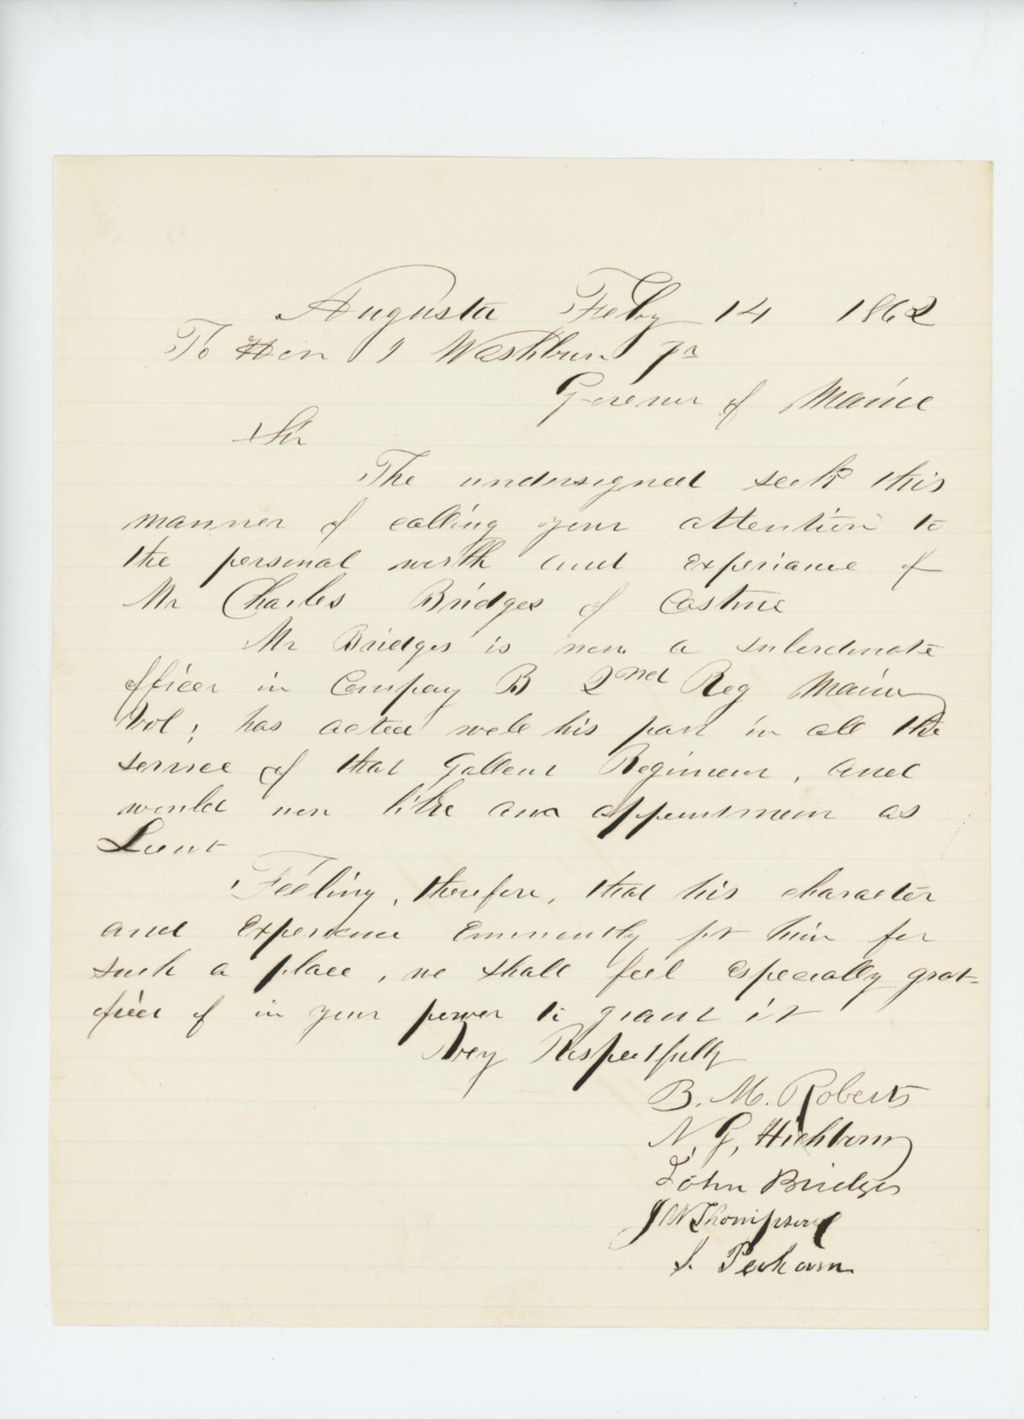 Augusta Feby 14 1862
To Hon I Washburn Jr
Govenor of Maine
Sir
The undersigned seek this
manner of calling your attention to
the personal worth and experiance of
Mr Charles Bridges of Castine
Mr Bridges is now a subordinate
officer in Company B 2nd Reg Maine
Vol; has acted well his part in all the
service of that Gallent Regiment, and
would now like an appointment as
Lieut
Feeling, therefore, that his character
and experience eminently fit him for
such a place, we shall feel especially grat-
ified if in your power to grant it
Very Respectfully
B. M. Roberts
N. G. Hichborn
John Bridges
J W Thompson
S. Perham